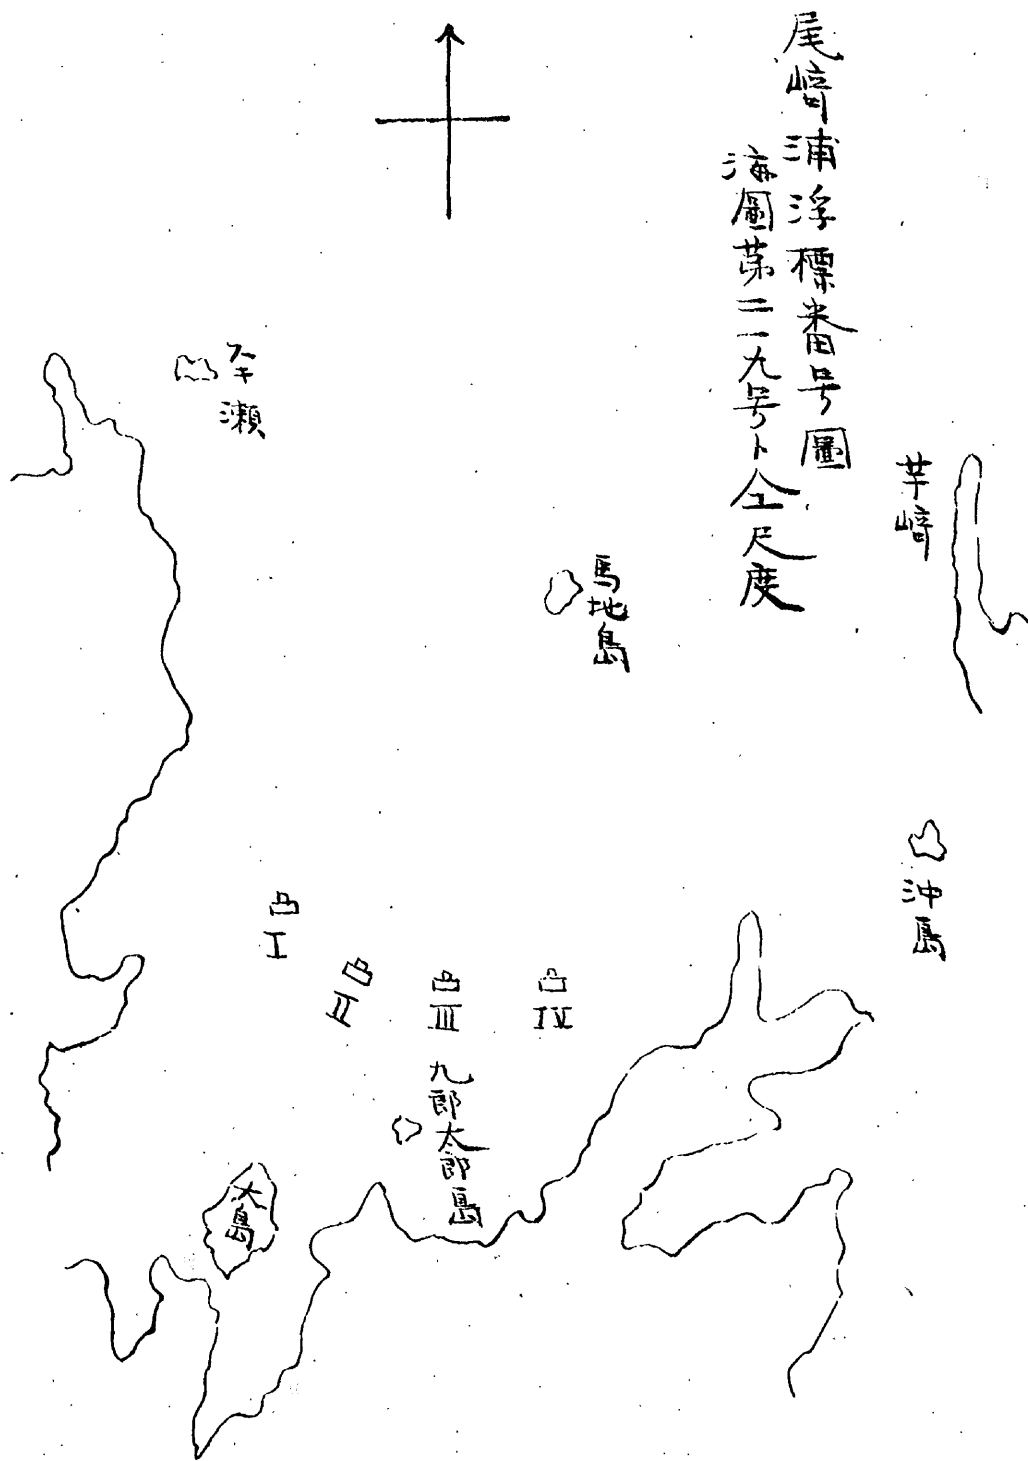 尾﨑浦浮標番号圖
海圖第二一九号ト仝尺度
芋﨑
馬地島
沖島
瀬
I
II
III
IV
九郎太郎島
大島